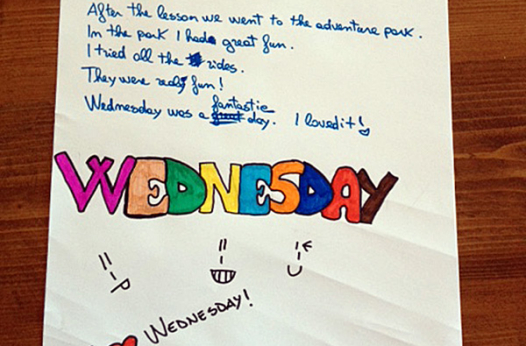 After the lesson we went to the adventure park.
In the park I had great fun.
I tried all the rides.
They were really fun!
fantastic
Wednesday was a day. I loved it!
WEDNESDAY
WEDNESDAY!